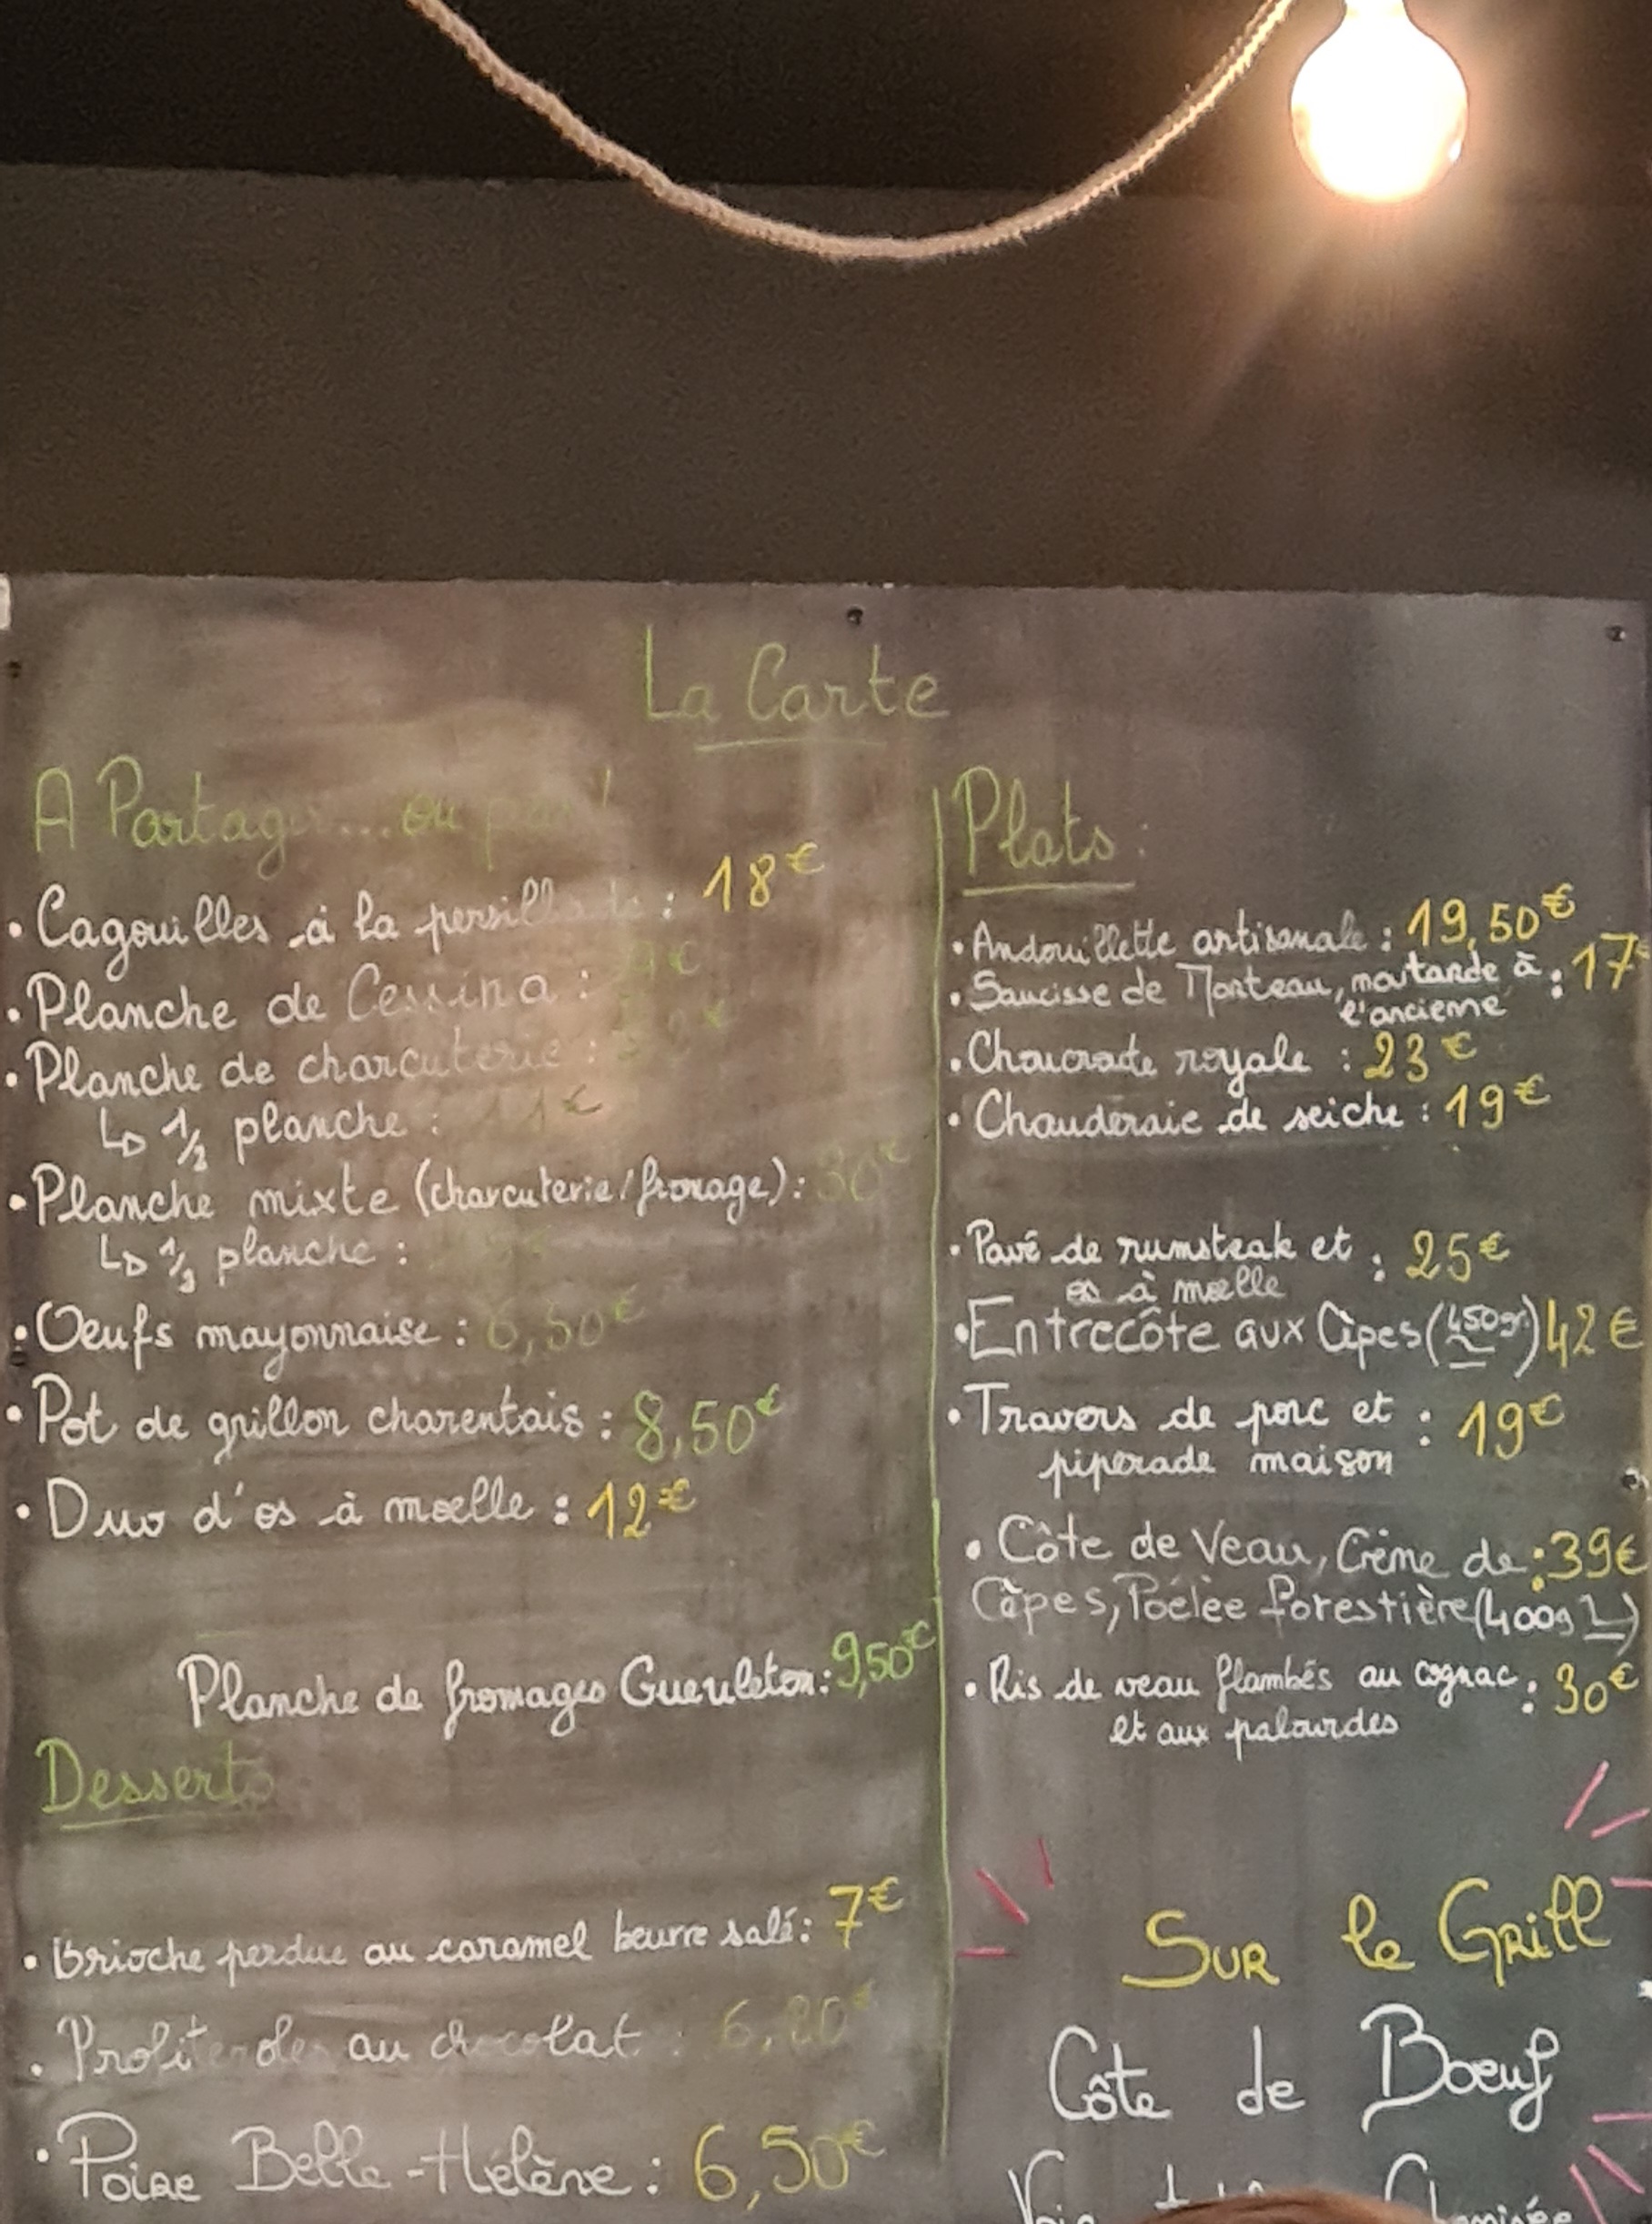 La Carte
A Partager... ou pas!
• Cagouilles à la persillade : 18€
• Planche de Cessina : 9€
• Planche de charcuterie :
↳ 1/2 planche : 11€
• Planche mixte (charcuterie/fromage) : 30€
↳ 1/2 planche :
• Oeufs mayonnaise : 6,50€
• Pot de grillon charentais : 8,50€
• Duo d'os à moelle : 12€
Planche de fromages Gueuleton : 9,50€
Desserts
• Brioche perdue au caramel beurre salé : 7€
• Profiteroles au chocolat :
• Poire Belle-Hélène : 6,50€
Plats :
• Andouillette artisanale : 19,50€
• Saucisse de Morteau, moutarde à : 17€
l'ancienne
• Choucroute royale : 23€
• Chauderaie de seiche : 19€
• Pavé de rumsteak et : 25€
os à moelle
• Entrecôte aux Cèpes (450gr) 42€
• Travers de porc et : 19€
piperade maison
• Côte de Veau, Crème de : 39€
Cèpes, Poêlée Forestière (400g)
• Ris de veau flambés au cognac : 30€
et aux palourdes
Sur le Grill
Côte de Boeuf